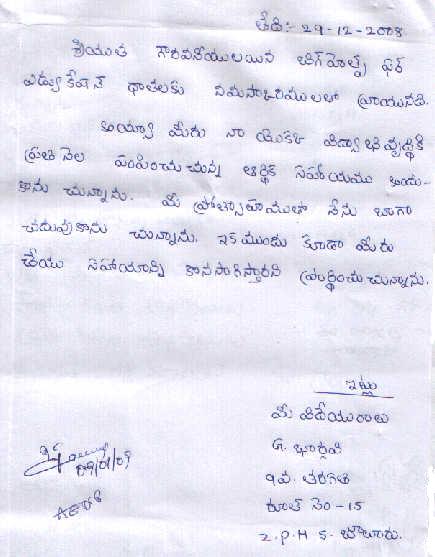 తేది:- 29-12-2008
శ్రీయుత గౌరవనీయులయిన బిగ్‌హెల్ప్ ఫర్
ఎడ్యుకేషన్ దాతలకు నమస్కారములతో వ్రాయునది.
అయ్యా మీరు నా యొక్క విద్యాభివృద్ధికి
ప్రతి నెల పంపించుచున్న ఆర్థిక సహాయము అందు-
కొను చున్నాను. మీ ప్రోత్సాహముతో నేను బాగా
చదువుకొను చున్నాను. ఇక ముందు కూడా మీరు
చేయు సహాయాన్ని కొనసాగిస్తారని ప్రార్థించుచున్నాను.
ఇట్లు
మీ విదేయురాలు
G. భార్గవి
9వ. తరగతి
రూల్ నెం-15
Z.P.H.S.
09/01/09